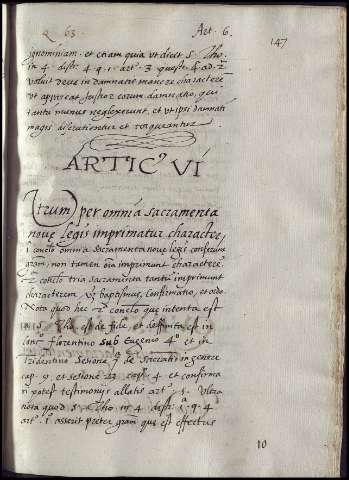 Q 63. Art. 6. 147
ignominiam. et etiam quia ut dicit S. Tho.
in 4. dist. 4. q. 1. art. 3 quest. 4. ad. 2.
voluit deus in damnatis manere characterē
ut appareat justior eorum damnatio, qui
tantū munus neglexerunt, et ut ipsi damnati
magis et torqueantur
ARTIC' VI
Utrum per omnia sacramenta
nove legis imprimatur character,
1 conclo omnia sacramenta nove legis conferunt
gram, non tamen oīa imprimunt characterē.
2 conclo tria sacramenta tantū imprimunt
characterem, vz baptismus, Confirmatio, et ordo.
Nota quod hec 2 conclo que intenta est
in S. Tho. est de fide, et deffinita est in
Conc. florentino sub Eugenio 4º et in
tridentino sesione 7ª de sacratis in genere
cap. 9. et sesione 23 cap. 4. et confirma
ri potest testimonijs allatis artº 1. Ultra
nota quod S. Tho. in 4 dist. 1ª q. 4
artº 1º asserit preter gram que est effectus
10